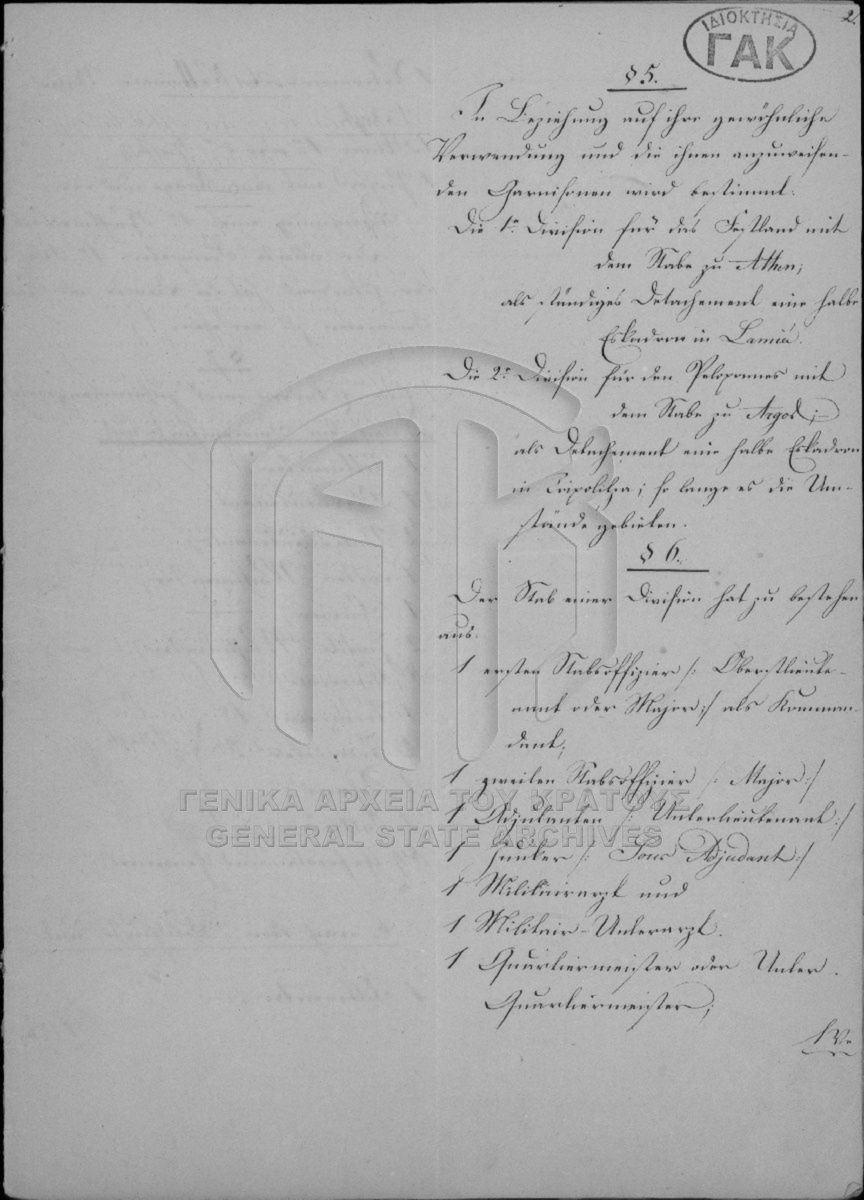 2.
ΙΔΙΟΚΤΗΣΙΑ
ΓΑΚ
§ 5.
In Beziehung auf ihre gewöhnliche
Verwendung und die ihnen anzuweisen-
den Garnisonen wird bestimmt:
Die 1te Division für das Festland mit
dem Stabe zu Athen;
als ständiges Detachement eine halbe
Eskadron in Lamia.
Die 2te Division für den Pelopones mit
dem Stabe zu Argos;
als Detachement eine halbe Eskadron
in Tripolitza; so lange es die Um-
stände gebieten.
§ 6.
Der Stab einer Division hat zu bestehen
aus:
1 ersten Stabsoffizier /: Oberstlieute-
nant oder Major :/ als Komman-
dant;
1 zweiten Stabsoffizier /: Major :/
ΓΕΝΙΚΑ ΑΡΧΕΙΑ ΤΟΥ ΚΡΑΤΟΥΣ
1 Adjutanten /: Unterlieutenant :/
GENERAL STATE ARCHIVES
1 Junker /: Sous Adjudant :/
1 Militairarzt und
1 Militair-Unterarzt.
1 Quartiermeister oder Unter-
Quartiermeister;